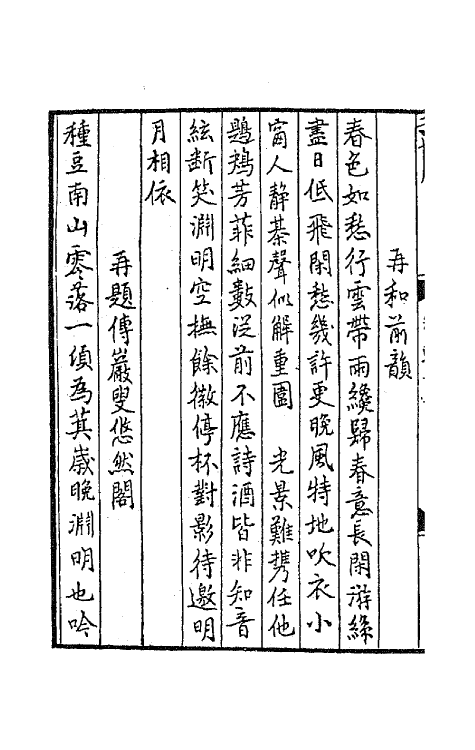 再和前韻
春色如愁行雲帶雨纔歸春意長閑游絲
盡日低飛閑愁幾許更晚風特地吹衣小
窗人靜棊聲似解重圍　光景難攜任他
鶗鴂芳菲細數從前不應詩酒皆非知音
絃斷笑淵明空撫餘徽停杯對影待邀明
月相依
再題傅巖叟悠然閣
種豆南山零落一頃爲萁歲晚淵明也吟